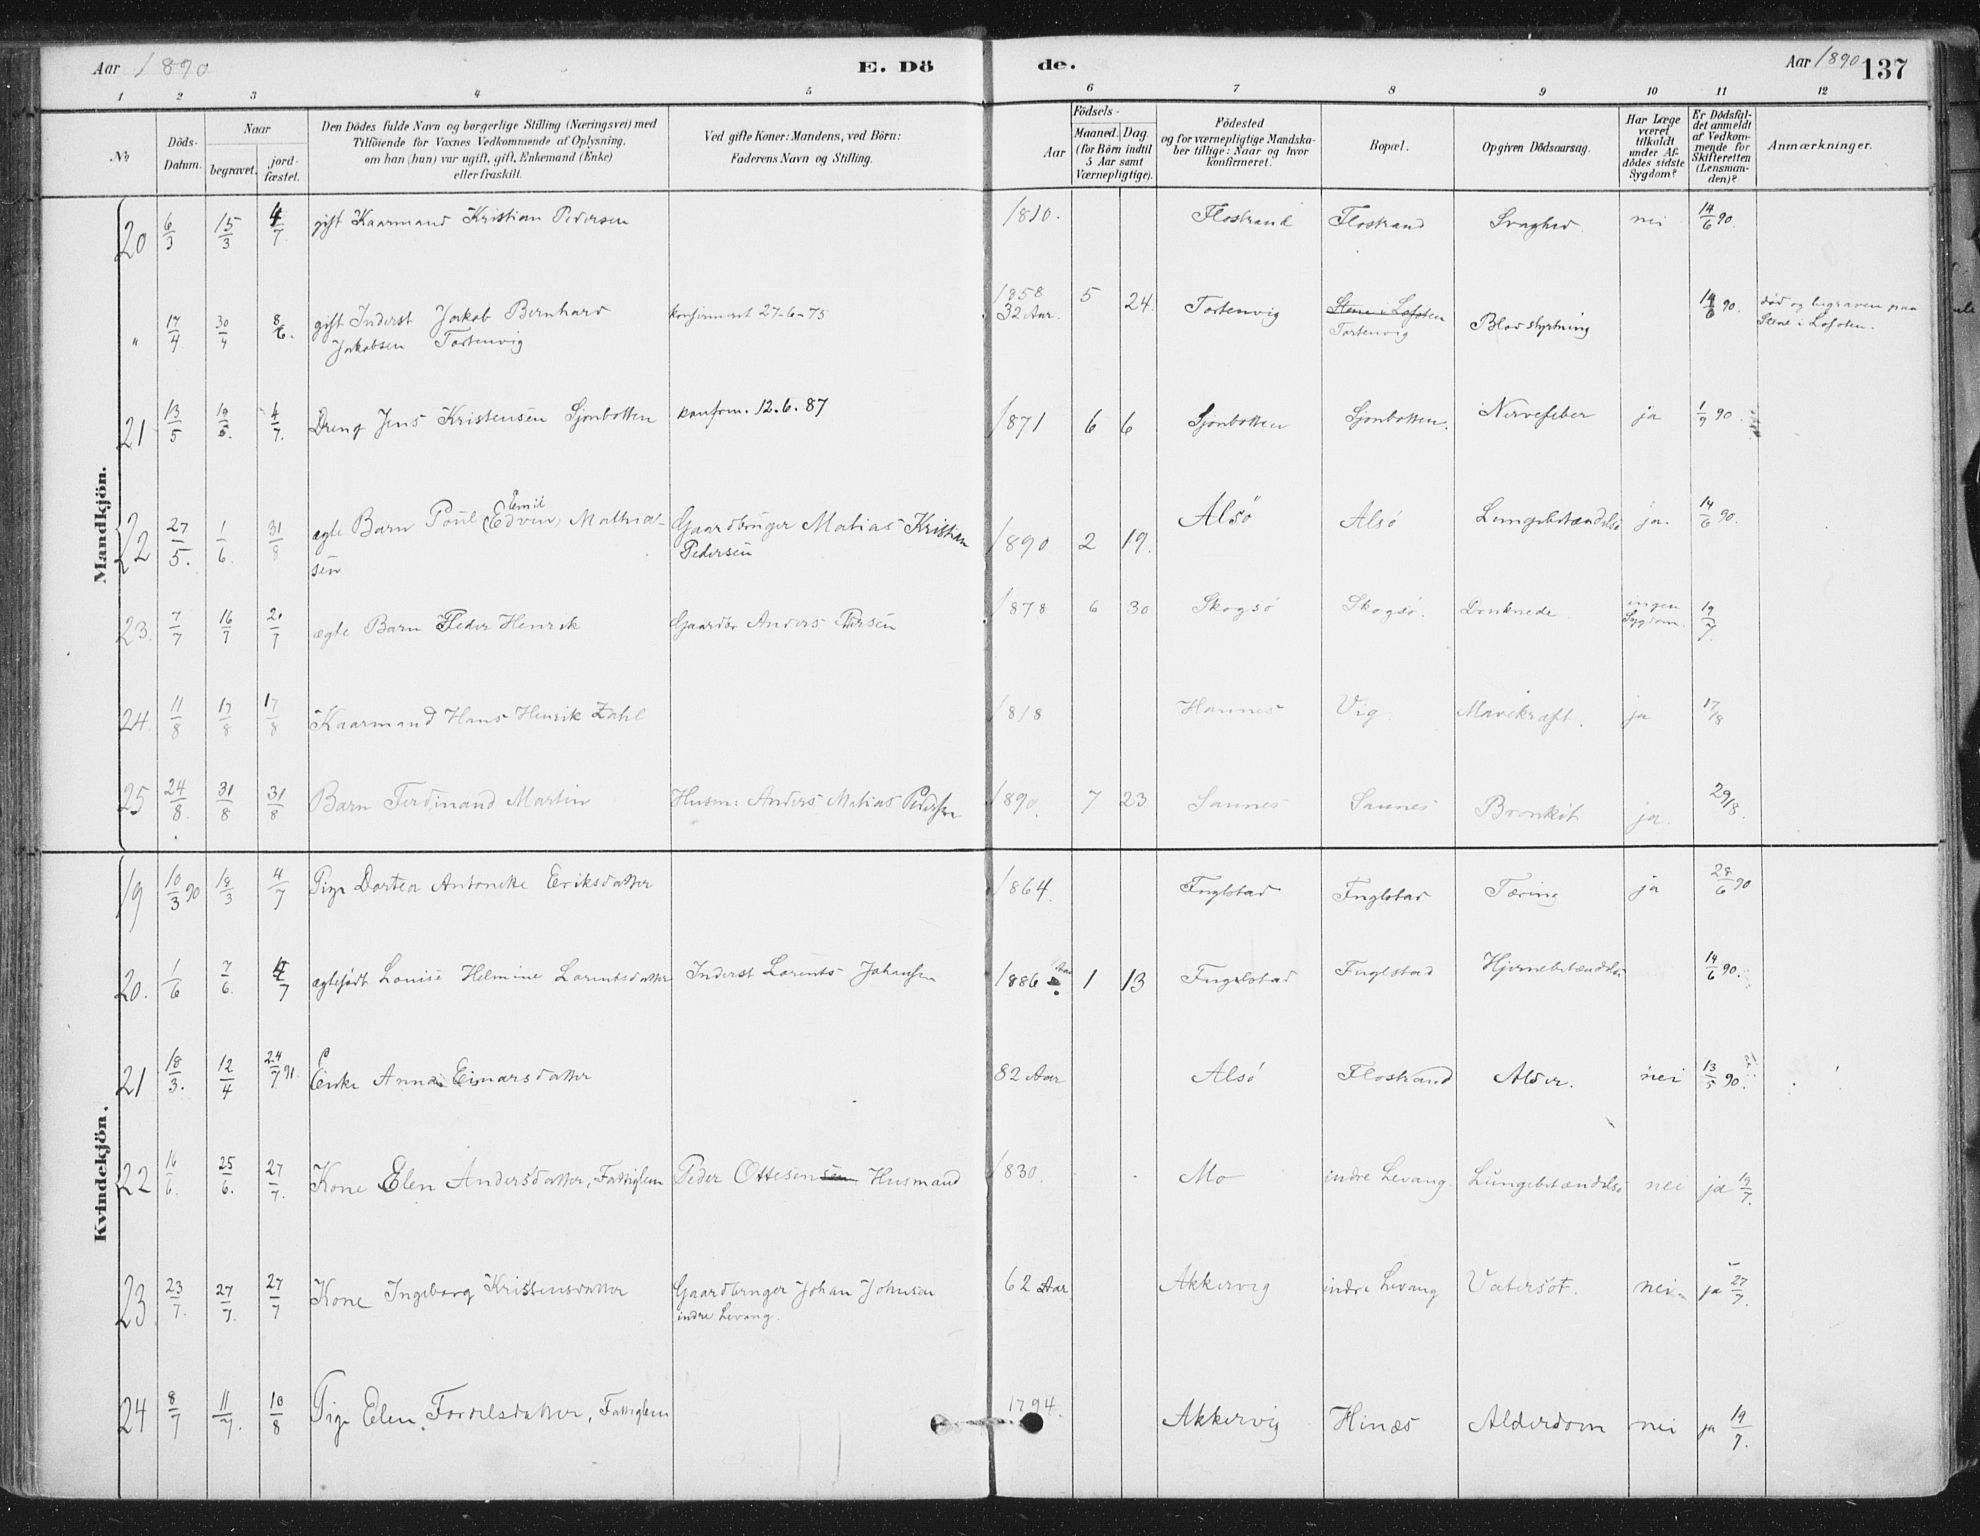 Aar 1890 E. Dö de. Aar 1890 137
1 2 3 4 5 6 7 8 9 10 11 12
No
Döds-Datum.
Naar
begravet.
jord-fæstet.
Den Dödes fulde Navn og borgerlige Stilling (Næringsvei) med
Tilföiende for Voxnes Vedkommende af Oplysning,
om han (hun) var ugift, gift, Enkemand (Enke)
eller fraskilt.
Ved gifte Koner: Mandens, ved Börn:
Faderens Navn og Stilling.
Födsels-
Aar
Maaned. Dag.
(for Börn indtil
5 Aar samt
Værnepligtige).
Födested
og for værnepligtige Mandska-
ber tillige: Naar og hvor
konfirmeret.
Bopæl.
Opgiven Dödsaarsag.
Har Læge
været
tilkaldt
under Af-
dödes sidste
Sygdom?
Er Dödsfal-
det anmeldt
af Vedkom-
mende for
Skifteretten
(Lensman-
den)?
Anmærkninger.
Mandkjön.
20 6/3 15/3 4/7 gift Kaarmand Kristian Pedersen 1810. Flostrand Flostrand Svaghed nei 14/6 90.
" 17/4 30/4 8/6. gift Inderst Jakob Bernhard konfirmert 27-6-75 1858 5 24 Tortenvig Stene i Lofoten 14/6 90. død og begraven paa
Jakobsen Tortenvig 32 Aar. Tortenvig Blodstyrtning Stene i Lofoten.
21 13/5 19/5. 4/7. Dreng Jens Kristensen Sjonbotten konfirm. 12.6.87 1871 6 6 Sjonbotten Sjonbotten. Nervefeber ja 1/9 90.
22 27/5. 1/6. 31/8 ægte Barn Poul (Edvin) Emil Mathia- Gaardbruger Matias Kristian 1890 2 19. Alsö Alsö Lungebetændelse ja. 14/6 90.
sen Pedersen
23. 7/7 16/7 20/7 ægte Barn Peder Henrik Gaardbr Anders Persen 1878 6 30 Skogsö Skogsö. Druknede ingen Sygdom. 19/7.
24. 11/8 17/8 17/8 Kaarmand Hans Henrik Zahl 1818 Hannes Vig Mavekræft. ja 17/8
25 24/8. 31/8 31/8 Barn Ferdinand Martin Husm: Anders Matias Pedersen 1890. 7 23 Saunes Saunes Bronkit ja. 29/8.
Kvindekjön.
19 10/3 90 18/3 4/7 Pige Dortea Antoneke Eriksdatter 1864. Fuglstad Fuglstad Tæring ja 28/6 90
20. 1/6 7/6. 4/7 ægtefødt Louise Helmine Lorentsdatter Inderst Lorents Johansen 1886 1 13 Fuglstad Fuglstad Hjernebetændelse 14/6 90.
21 18/3. 12/4 24/7 91. Enke Anna Einarsdatter 82 Aar Alsö Flostrand Alder. nei 13/5 90.
22 16/6. 25/6. 27/7. Kone Elen Andersdatter, Fattiglem Peder Ottesen Husmand 1830. Mo indre Levang. Lungebetændelse nei ja 19/7.
23. 23/7. 27/7. 27/7 Kone Ingeborg Kristensdatter Gaardbruger Johan Johnsen 62 Aar Akkervig indre Levang Vatersot. nei ja 27/7.
indre Levang.
24 8/7 11/7. 10/8 Pige Elen Tordelsdatter, Fattiglem 1794. Akkervig Hinæs Alderdom nei ja 19/7.